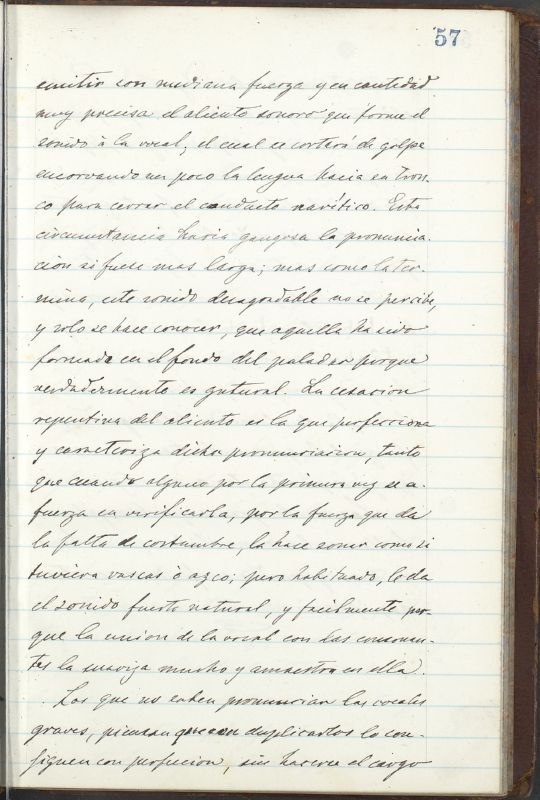 57
emitir con mediana fuerza y en cantidad
muy precisa el aliento sonoro que forme el
sonido á la vocal, el cual se cortará de golpe
encorvando un poco la lengua hacia su tron-
co para cerrar el conducto narítico. Esta
circunstancia haria gangosa la pronuncia-
cion si fuese mas larga; mas como la ter-
mina, este sonido desagradable no se percibe,
y solo se hace conocer, que aquella ha sido
formada en el fondo del paladar porque
verdadermente es gutural. La cesacion
repentina del aliento es la que perfecciona
y caracteriza dicha pronunciacion, tanto
que cuando alguno por la primera vez se a-
fuerza en verificarla, por la fuerza que da
la falta de costumbre, la hace sonar como si
tuviera vascas ò asco; pero habituado, le da
el sonido fuerte natural, y facilmente por-
que la union de la vocal con las consonan-
tes la suaviza mucho y amaestra en ella.
Los que no saben pronunciar las vocales
graves, piensan que con duplicarlas lo con-
siguen con perfeccion, sin hacerse el cargo